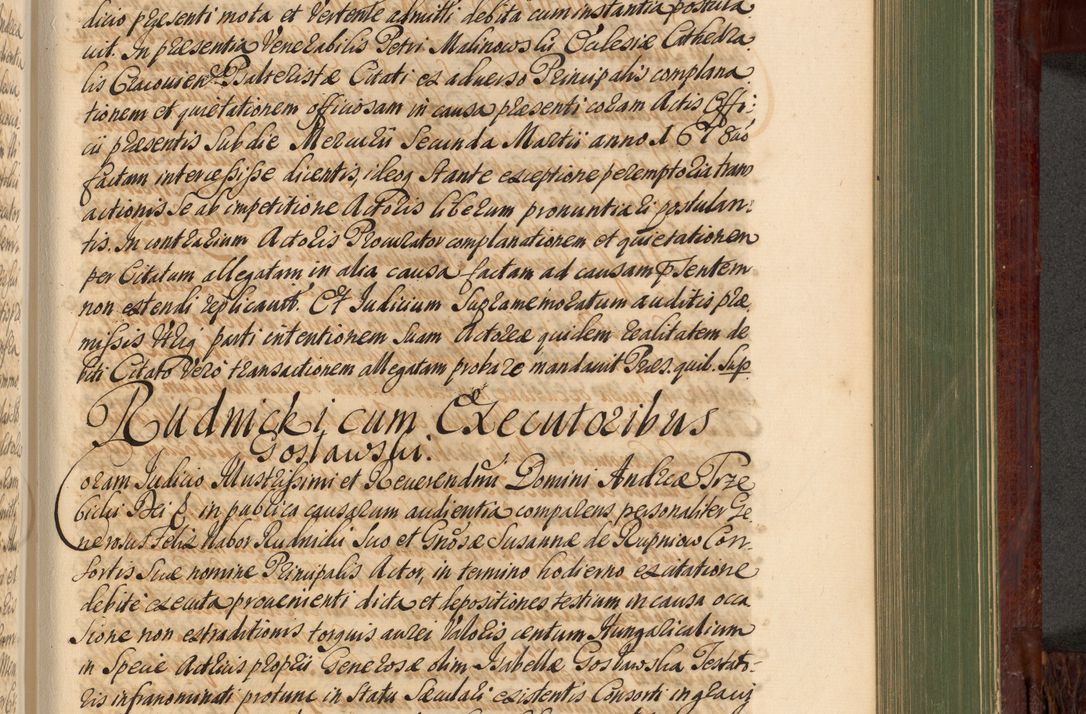 dicio presenti mota et vertente admitti debita cum instantia postula
uit. In presentia Venerabilis Petri Malinowski Ecclesiæ Cathedra
lis Cracouien Psalteristæ Citati ex aduerso Principalis complana
tionem et quietationem officiosam in causa presenti coram Actis Offi:
cii præsentis sub die Mercurii Secunda Martii anno 1678uo
factam intercessisse dicentis, ideoq stante exceptione peremptoria trans
actionis se ab impetitione Actoris liberum pronuntiari postulan:
tis. In contrarium Actoris Procurator complanationem et quietationem
per Citatum allegatam in alia causa factam ad causam psentem
non extendi replicauit. Et Iudicium Supramemoratum auditis præ
missis Vtriq parti intentionem suam Actoreæ quidem realitatem de
biti Citato Vero transactionem allegatam probare mandauit Præs. quib. Sup
Rudnicki cum Executoribus
Goslawski.
Coram Iudicio Illustrissimi et Reuerendmi Domini Andreæ Trze
bicki Dei & in publica causarum audientia comparens personaliter Ge
nerosus Felix Nabor Rudnicki suo et Gnosæ Susannæ de Rupniow Con
sortis suæ nomine Principalis Actor, in termino hodierno ex citatione
debite executa prouenienti dicta et depositiones testium in causa occa
sione non extraditionis torquis aurei Valoris centum Hungaricalium
in specie Actricis proprii Generosæ olim Isabellæ Goslawska Testato-
ris infranominati protunc in statu sæculari existentis Consorti in